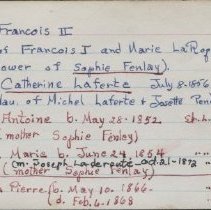 Francois III
of Francois I and Marie LaRo
ower of Sophie Fenlay)
Catherine Laferte July 8-1856
dau. of Michel Laferte & Josette Pen
Antoine b. May 28-1852
mother Sophie Fenley)
Marie b. June 24, 1854
(m. Joseph Laderoute Oct. 21-1872
(mother Sophie Fenlay)
Pierre (b. May 10. 1866-
d. Feb. 4-1868